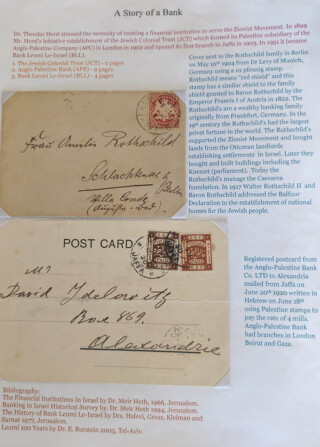 A Story of a Bank
Dr. Theodor Herzl stressed the necessity of creating a financial institution to serve the Zionist Movement. In 1899
Mr. Herzl's initiative establishment of the Jewish Colonial Trust (JCT) which formed its Palestine subsidiary of the
Anglo Palestine Company (APC) in London in 1902 and opened its first branch in Jaffa in 1903. In 1951 it became
Bank Leumi Le-Israel (BLL).
1. The Jewish Colonial Trust (JCT) - 2 pages
2. Anglo Palestine Bank (APB) - 4 pages
3. Bank Leumi Le-Israel (BLL) - 4 pages
Cover sent to the Rothschild family in Berlin
on May 10th 1904 from Ex Levy of Munich,
Germany using a 10 pfennig stamp.
Rothschild means "red shield" and this
stamp has a similar shield to the family
shield granted to Baron Rothschild by the
Emperor Francis I of Austria in 1822. The
Rothschilds are a wealthy banking family
originally from Frankfurt, Germany. In the
19th century the Rothschild's had the largest
privet fortune in the world. The Rothschild's
supported the Zionist Movement and bought
lands from the Ottoman landlords
establishing settlements in Israel. Later they
bought and built buildings including the
Knesset (parliament). Today the
Rothschild's manage the Caesarea
foundation. in 1917 Walter Rothschild II and
Baron Rothschild addressed the Balfour
Declaration to the establishment of national
homes for the Jewish people.
Frau Amelie Rothschild
Schlachtensee b/
Berlin
Villa
POST CARD
JAFFA
E.E.F.
E.E.F.
Mr
David Idelovitz
Box 869.
Alexandrie
Registered postcard from
the Anglo-Palestine Bank
Co. LTD to Alexandria
mailed from Jaffa on
June 20th 1920 written in
Hebrew on June 18th
using Palestine stamps to
pay the rate of 4 mills.
Anglo-Palestine Bank
had branches in London
Beirut and Gaza.
Bibliography:
The Financial Institutions In Israel by Dr. Meir Heth, 1966, Jerusalem.
Banking in Israel Historical Survey by Dr. Meir Heth 1994, Jerusalem.
The History of Bank Leumi Le-Israel by Drs. Halevi, Gross, Kleiman and
Sarnat 1977, Jerusalem.
Leumi 100 Years by Dr. E. Borstein 2003, Tel-Aviv.